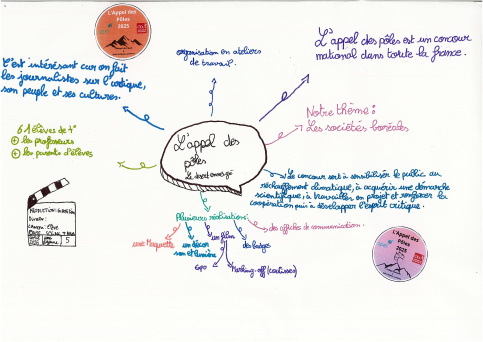 L'Appel des
Pôles
2025
organisation en ateliers
de travail.
L'appel des pôles est un concour
national dans toute la france.
C'est intéresant car on fait
les journalistes sur l'arctique,
son peuple et ses cultures.
Notre thème:
Les sociétés boréales
61 élèves de 4e
les professeurs
les parents d'élèves
L'appel des
pôles
Le concour sert à sensibiliser le public au
réchauffement climatique, à acquérir une démarche
scientifique, à travailler en projet et renforcer la
coopération puis à développer l'esprit critique.
Plusieurs réalisation:
des affiches de communication.
une Maquette
un décor
son et lumière
un film
des badges
Expo
Making-off (coulisses)
5
L'Appel des
Pôles
2025